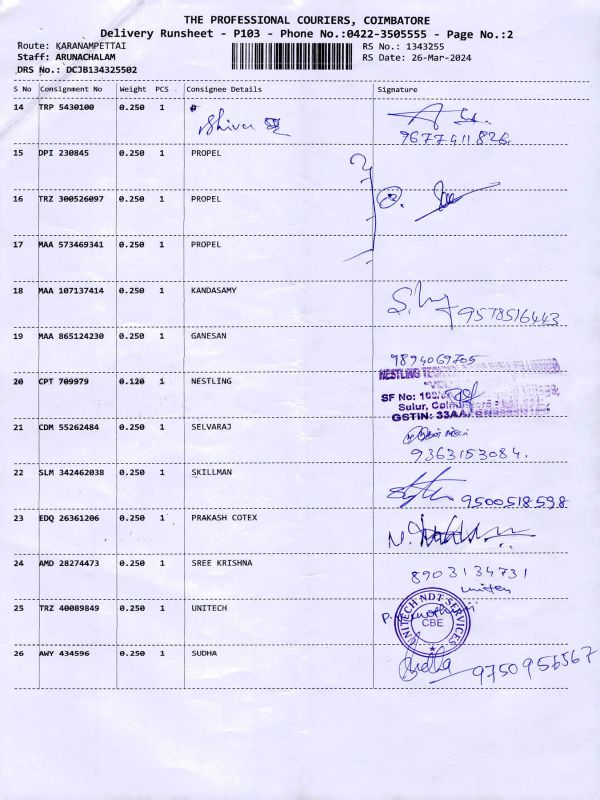 THE PROFESSIONAL COURIERS, COIMBATORE
Delivery Runsheet - P103 - Phone No.:0422-3505555 - Page No.:2
Route: KARANAMPETTAI RS No.: 1343255
Staff: ARUNACHALAM RS Date: 26-Mar-2024
DRS No.: DCJB134325502
S No Consignment No Weight PCS Consignee Details Signature
14 TRP 5430100 0.250 1 Shiva
9677411826
15 DPI 230845 0.250 1 PROPEL
16 TRZ 300526097 0.250 1 PROPEL
17 MAA 573469341 0.250 1 PROPEL
18 MAA 107137414 0.250 1 KANDASAMY
9578516443
19 MAA 865124230 0.250 1 GANESAN
9894069765
20 CPT 709979 0.120 1 NESTLING
NESTLING
SF No:
Sulur,
GSTIN: 33AA
21 CDM 55262484 0.250 1 SELVARAJ
9363153084.
22 SLM 342462038 0.250 1 SKILLMAN
9500518598
23 EDQ 26361206 0.250 1 PRAKASH COTEX
24 AMD 28274473 0.250 1 SREE KRISHNA
8903134731
25 TRZ 40089849 0.250 1 UNITECH
UNITECH NDT SERVICES
CBE
26 AWY 434596 0.250 1 SUDHA
9750956567